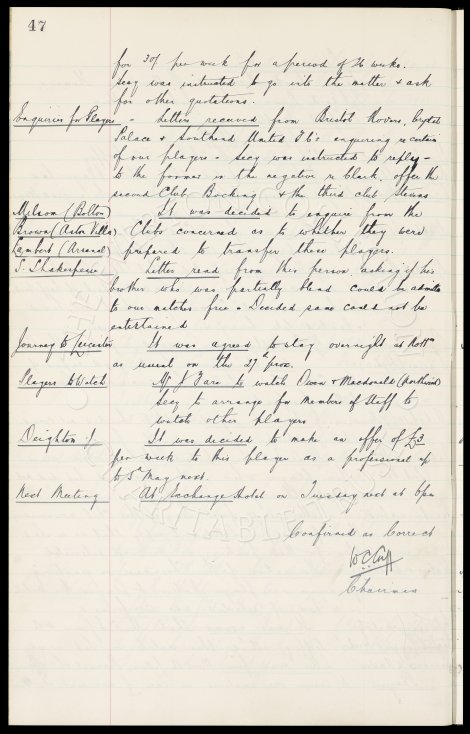 47
for 30/ per week for a period of 26 weeks.
Secy was instructed to go into the matter & ask
for other quotations.
Enquiries for Players - Letters received from Bristol Rovers, Crystal
Palace & Southend United F.C's enquiring re certain
of our players - Secy was instructed to reply -
to the former in the negative re Clark, offer the
second Club Bocking & the third club
Milsom (Bolton) It was decided to enquire from the
Brown (Aston Villa) Clubs concerned as to whether they were
Lambert (Arsenal) prepared to transfer these players.
Shakespeare Letter read from this person asking if his
brother who was partially blind could be admitted
to our matches free - Decided same could not be
entertained
Journey to Leicester It was agreed to stay overnight at Nottm
as usual on the 27th prox.
Players to Watch Mr J Fare to watch Owen & Macdonald (Northwich)
Secy to arrange for Members of Staff to
watch other players
Deighton J It was decided to make an offer of £3
per week to this player as a professional up
to 5th May next.
Next Meeting At Exchange Hotel on Tuesday next at 6pm
Confirmed as Correct
W C Cuff
Chairman